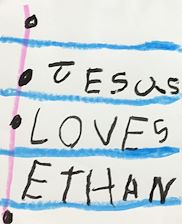 JESUS
LOVES
ETHAN